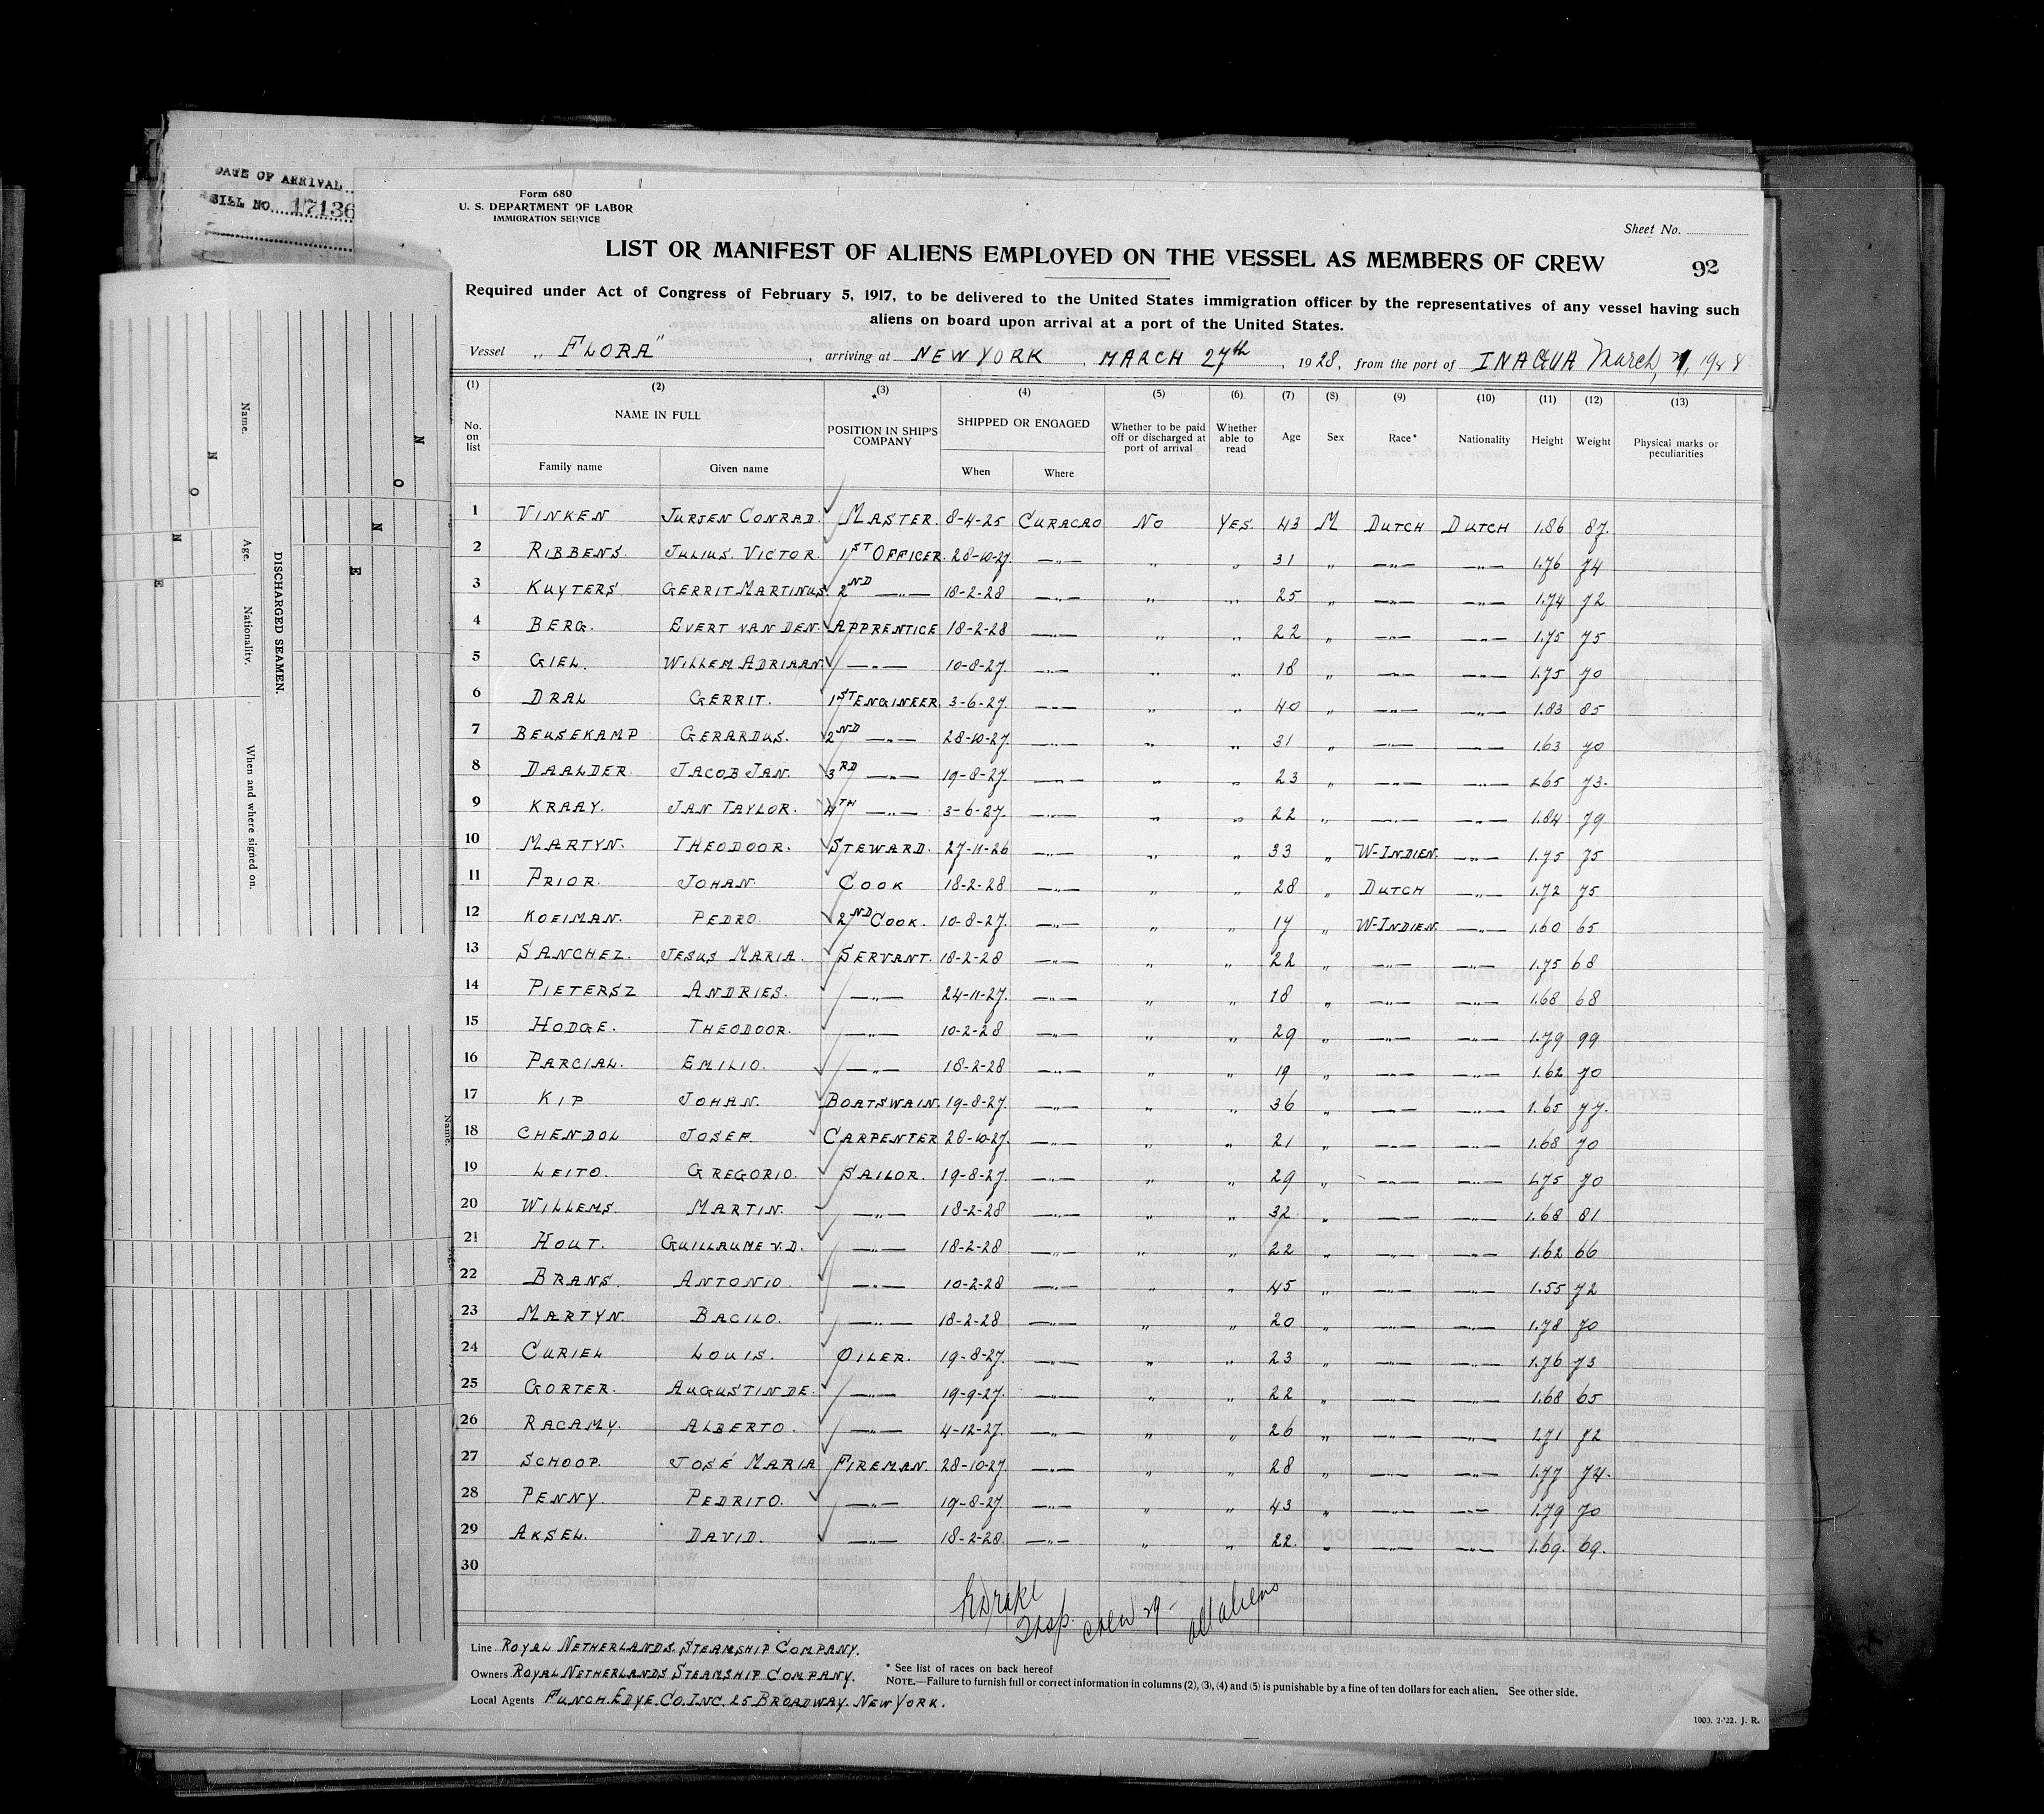 DATE OF ARRIVAL
BILL NO. 17136
Form 680
U. S. DEPARTMENT OF LABOR
IMMIGRATION SERVICE
Sheet No.
LIST OR MANIFEST OF ALIENS EMPLOYED ON THE VESSEL AS MEMBERS OF CREW
92
Required under Act of Congress of February 5, 1917, to be delivered to the United States immigration officer by the representatives of any vessel having such
aliens on board upon arrival at a port of the United States.
Vessel „ FLORA" , arriving at NEW YORK , MARCH 27th , 1928, from the port of INAGUA March, 1928
(1) (2) (3) (4) (5) (6) (7) (8) (9) (10) (11) (12) (13)
No. on list NAME IN FULL Family name Given name *POSITION IN SHIP'S COMPANY SHIPPED OR ENGAGED When Where Whether to be paid off or discharged at port of arrival Whether able to read Age Sex Race* Nationality Height Weight Physical marks or peculiarities
1 VINKEN JURJEN CONRAD. MASTER. 8-4-25 CURACAO NO YES. 43 M DUTCH DUTCH 1.86 87.
2 RIBBENS. JULIUS. VICTOR. 1ST OFFICER. 28-10-27. —„— „ „ 31 „ —„— —„— 1.76 74
3 KUYTERS GERRIT MARTINUS 2ND —„— 18-2-28 —„— „ „ 25 „ —„— —„— 1.74 72
4 BERG. EVERT VAN DEN. APPRENTICE 18-2-28 —„— „ „ 22 „ —„— —„— 1.75 75
5 GIEL. WILLEM ADRIAAN. —„— 10-8-27. —„— „ „ 18 „ —„— —„— 1.75 70
6 DRAL GERRIT. 1ST ENGINEER. 3-6-27. —„— „ „ 40 „ —„— —„— 1.83 85
7 BEUSEKAMP GERARDUS. 2ND —„— 28-10-27. —„— „ „ 31 „ —„— —„— 1.63 70
8 DAALDER. JACOB JAN. 3RD —„— 19-8-27. —„— „ „ 23 „ —„— —„— 1.65 73.
9 KRAAY. JAN TAYLOR. 4TH —„— 3-6-27. —„— „ „ 22 „ —„— —„— 1.84 79
10 MARTYN. THEODOOR. STEWARD. 27-11-26 —„— „ „ 33 „ W-INDIEN. —„— 1.75 75
11 PRIOR. JOHAN. COOK 18-2-28 —„— „ „ 28 „ DUTCH —„— 1.72 75
12 KOEIMAN. PEDRO. 2ND COOK. 10-8-27. —„— „ „ 17 „ W-INDIEN. —„— 1.60 65
13 SANCHEZ. JESUS MARIA. SERVANT. 18-2-28 —„— „ „ 22 „ —„— —„— 1.75 68
14 PIETERSZ ANDRIES. —„— 24-11-27. —„— „ „ 18 „ —„— —„— 1.68 68
15 HODGE. THEODOOR. —„— 10-2-28 —„— „ „ 29 „ —„— —„— 1.79 99
16 PARCIAL. EMILIO. —„— 18-2-28 —„— „ „ 19 „ —„— —„— 1.62 70
17 KIP JOHAN. BOATSWAIN. 19-8-27. —„— „ „ 36 „ —„— —„— 1.65 77.
18 CHENDOL JOSEF. CARPENTER 28-10-27. —„— „ „ 21 „ —„— —„— 1.68 70
19 LEITO. GREGORIO. SAILOR. 19-8-27. —„— „ „ 29 „ —„— —„— 1.75 70
20 WILLEMS. MARTIN. —„— 18-2-28 —„— „ „ 32 „ —„— —„— 1.68 81
21 HOUT. GUILLAUME V.D. —„— 18-2-28 —„— „ „ 22 „ —„— —„— 1.62 66
22 BRANS. ANTONIO. —„— 10-2-28 —„— „ „ 45 „ —„— —„— 1.55 72
23 MARTYN. BACILO. —„— 18-2-28 —„— „ „ 20 „ —„— —„— 1.78 70
24 CURIEL LOUIS. OILER. 19-8-27. —„— „ „ 23 „ —„— —„— 1.76 73
25 GORTER. AUGUSTIN DE. —„— 19-9-27. —„— „ „ 22 „ —„— —„— 1.68 65
26 RACAMY. ALBERTO. —„— 4-12-27. —„— „ „ 26 „ —„— —„— 1.71 72
27 SCHOOP. JOSÉ MARIA FIREMAN. 28-10-27. —„— „ „ 28 „ —„— —„— 1.77 74.
28 PENNY. PEDRITO. —„— 19-8-27. —„— „ „ 43 „ —„— —„— 1.79 70
29 AKSEL. DAVID. —„— 18-2-28. —„— „ „ 22. „ —„— —„— 1.69. 69.
30
Insp. crew 29 - all aliens
Line ROYAL NETHERLANDS. STEAMSHIP COMPANY.
Owners ROYAL NETHERLANDS STEAMSHIP COMPANY.
Local Agents FUNCH. EDYE. CO. INC. 25 BROADWAY. NEW YORK.
* See list of races on back hereof
NOTE.—Failure to furnish full or correct information in columns (2), (3), (4) and (5) is punishable by a fine of ten dollars for each alien. See other side.
1000. 2-'22. J. R.
DISCHARGED SEAMEN.
Name. Age. Nationality. When and where signed on.
N O N E
N O N E